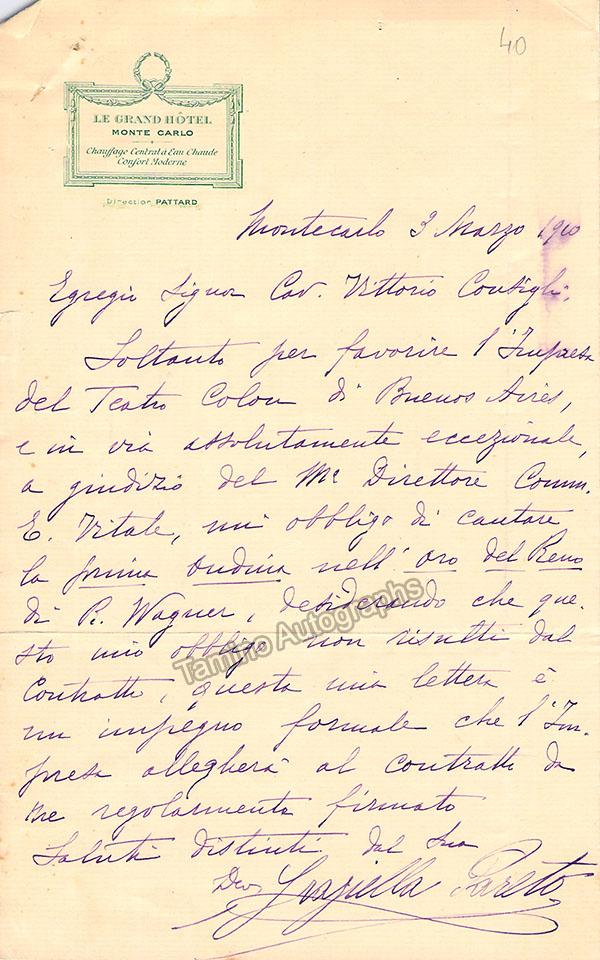 40
LE GRAND HÔTEL
MONTE CARLO
Chauffage Central à Eau Chaude
Confort Moderne
Direction PATTARD
Montecarlo 3 Marzo 1910
Egregio Signor Cav. Vittorio Consigli:
Soltanto per favorire l'Impresa
del Teatro Colon di Buenos Aires,
e in via assolutamente eccezionale,
a giudizio del Mº Direttore Comm.
E. Vitale, mi obbligo di cantare
la prima Ondina nell'Oro del Reno
di R. Wagner, desiderando che que-
sto mio obbligo non risulti dal
Contratto, questa mia lettera è
un impegno formale che l'Im-
presa allegherà al contratto da
me regolarmente firmato
Saluti distinti dal Sua
Dev. Graziella Pareto
Tamino Autographs